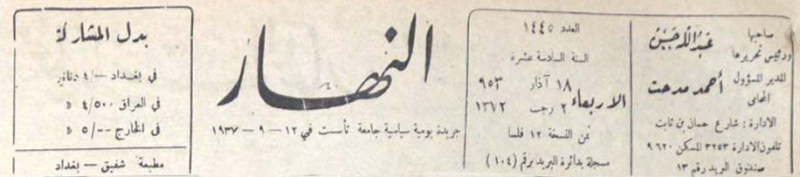 صاحبها
ورئيس تحريرها
عبدالله حسين
المدير المسؤول
المحامي
أحمد مدحت
الادارة : شارع حسان بن ثابت
تلفون الادارة ٣٢٥٣ المسكن ٩٦٢٠
صندوق البريد رقم ١٣
العدد ١٤٤٥
السنة السادسة عشرة
الاربعاء
١٨ آذار ٩٥٣
٢ رجب ١٣٧٢
ثمن النسخة ١٢ فلسا
مسجلة بدائرة البريد برقم (١٠٤)
النهار
جريدة يومية سياسية جامعة تأسست في ١٢ - ٩ - ١٩٣٧
بدل المشاركة
في بغداد ٤/- دنانير
في العراق ٤/٥٠٠ D
في الخارج ٥/٠٠ D
مطبعة شفيق - بغداد